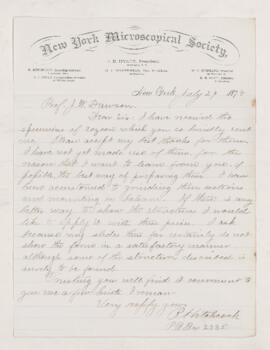 New York Microscopical Society,
J. D. HYATT, President,
New York, July 29 1878
Prof. J. W. Dawson
Dear Sir: I have received the
specimens of eozoon which you so kindly sent
me. Please accept my best thanks for them.
I have not yet made use of them, for the
reason that I want to learn from you, if
possible the best way of preparing them. I have
been accustomed to grinding thin sections
and mounting in balsam. If there is any
better way to show the structure I would
like to apply it with these pieces. I ask
because my slides thus far certainly do not
show the forms in a satisfactory manner
although some of the structure described is
surely to be found.
Trusting you will find it convenient to
give me a few hints I remain
Very respectfully yours
R Hitchcock
P.O. Box